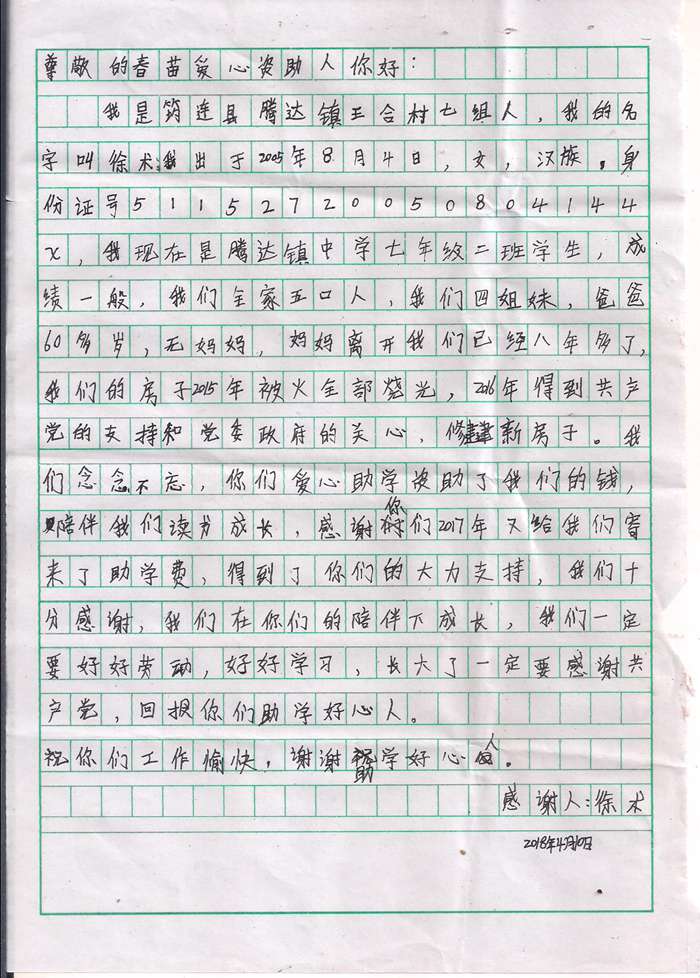 尊敬的春苗爱心资助人你好:
我是筠连县腾达镇王合村七组人,我的名
字叫徐术,我出于2005年8月4日,女,汉族。身
份证号51152720050804144
X,我现在是腾达镇中学七年级二班学生,成
绩一般,我们全家五口人,我们四姐妹,爸爸
60多岁,无妈妈,妈妈离开我们已经八年多了,
我们的房子2015年被火全部烧光,2016年得到共产
党的支持和党委政府的关心,修建新房子。我
们念念不忘,你们爱心助学资助了我们的钱,
陪伴我们读书成长,感谢你们2017年又给我们寄
来了助学费,得到了你们的大力支持,我们十
分感谢,我们在你们的陪伴下成长,我们一定
要好好劳动,好好学习,长大了一定要感谢共
产党,回报你们助学好心人。
祝你们工作愉快,谢谢助学好心人。
感谢人:徐术
2018年4月10日